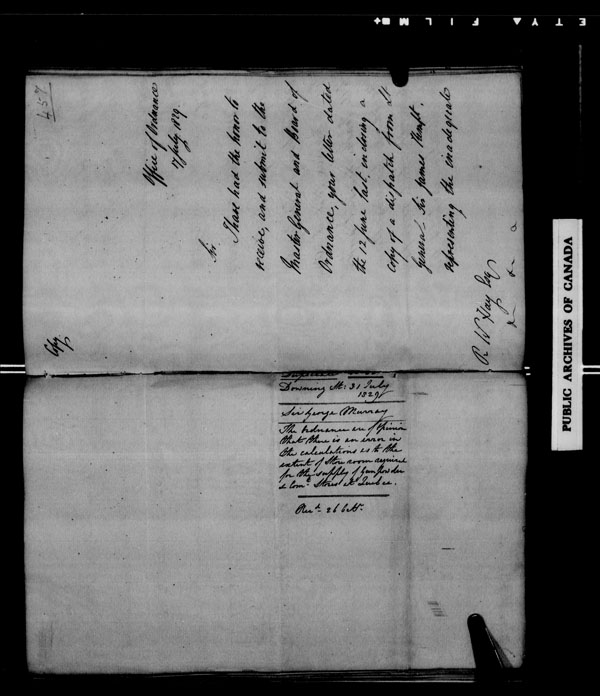 457
Copy
Office of Ordnance
17 July 1829.
Sir
I have had the honor to
receive, and submit to the
Master General and Board of
Ordnance, your letter dated
the 12 June last, inclosing a
copy of a dispatch from Lt
General Sir James Kempt.
representing the inadequate
R W Hay Esqr
&c &c &c
Downing St: 31 July
1829
Sir George Murray
The Ordnance are of opinion
that there is an error in
the calculations as to the
extent of Store room required
for the supply of Gunpowder
& Comt. Stores at Quebec.
Recd. 26 Octr.
PUBLIC ARCHIVES OF CANADA